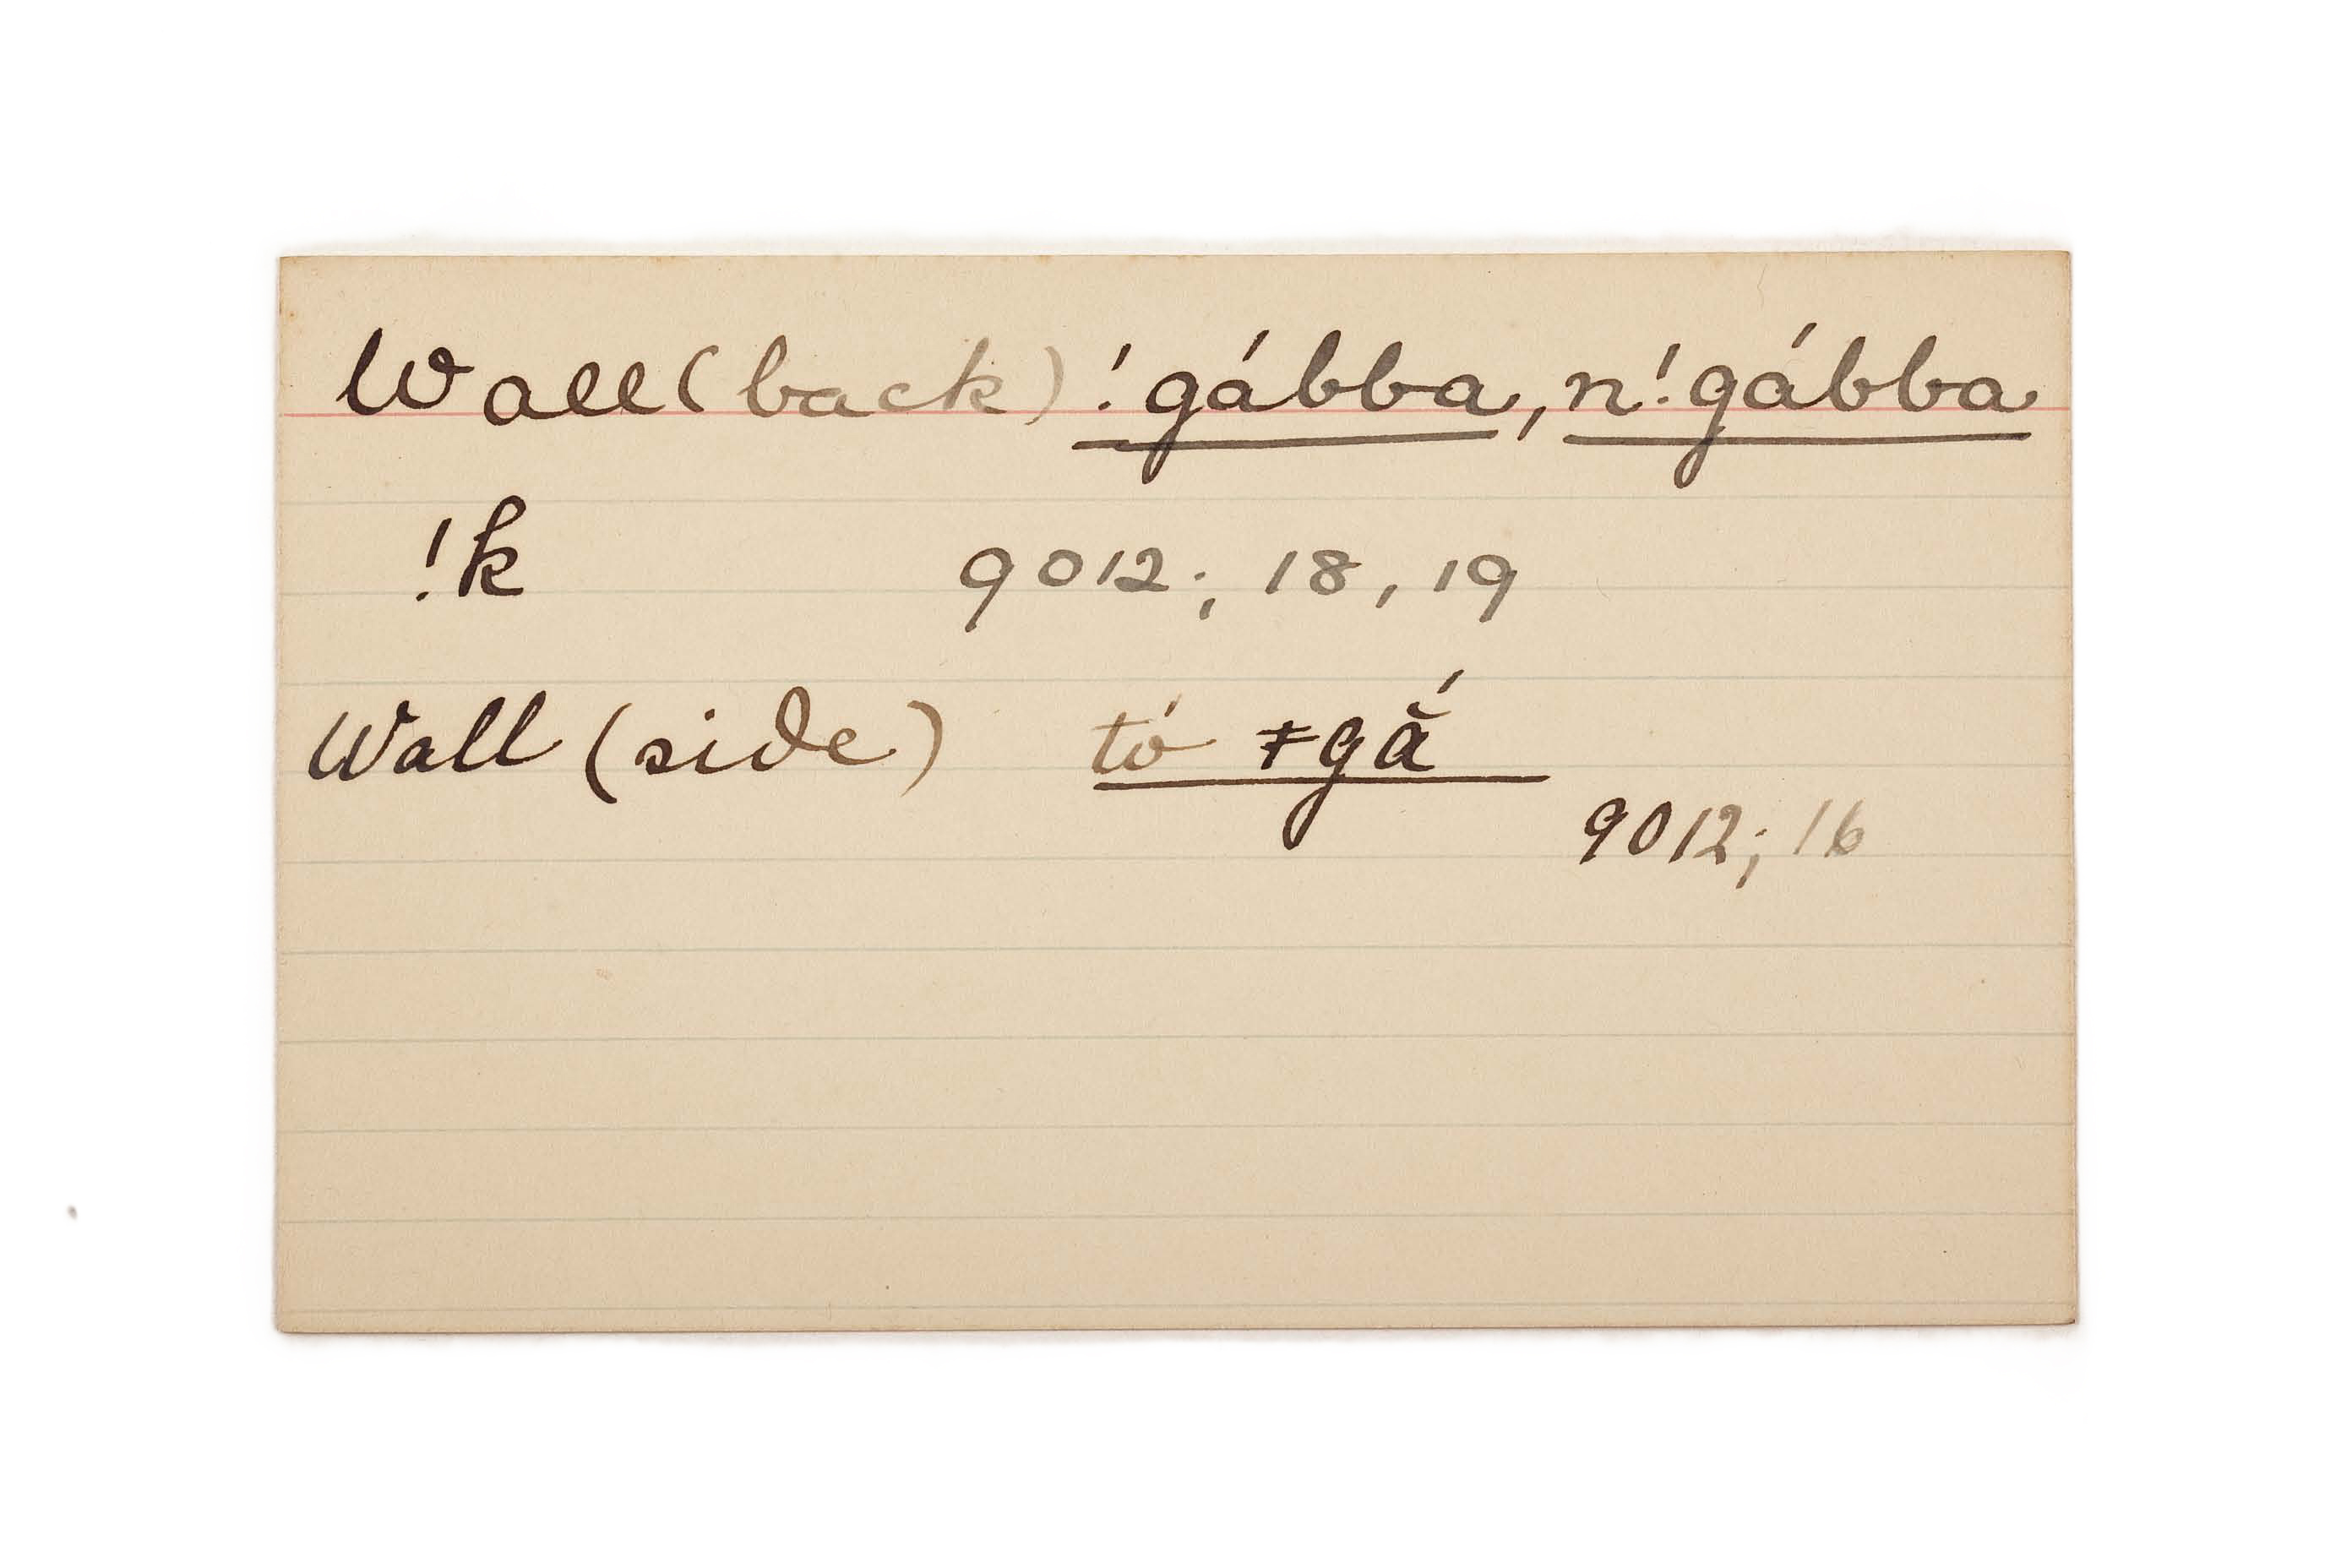 Wall (back) !gábba, n!gábba
!k 9012; 18, 19
Wall (side) tó ǂgắ
9012; 16